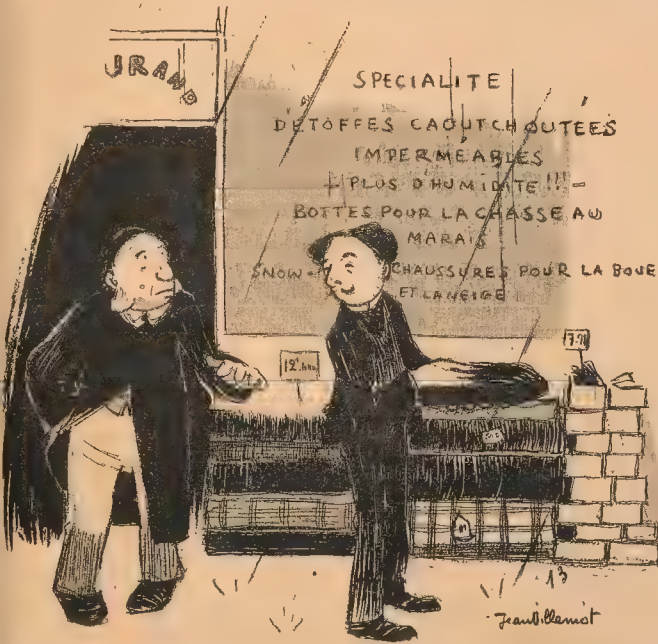 URAND
SPECIALITE
D'ÉTOFFES CAOUTCHOUTÉES
IMPERMÉABLES
+ PLUS D'HUMIDITE!!! -
BOTTES POUR LA CHASSE AU
MARAIS
SNOW-CHAUSSURES POUR LA BOUE
ET LA NEIGE
12f
13